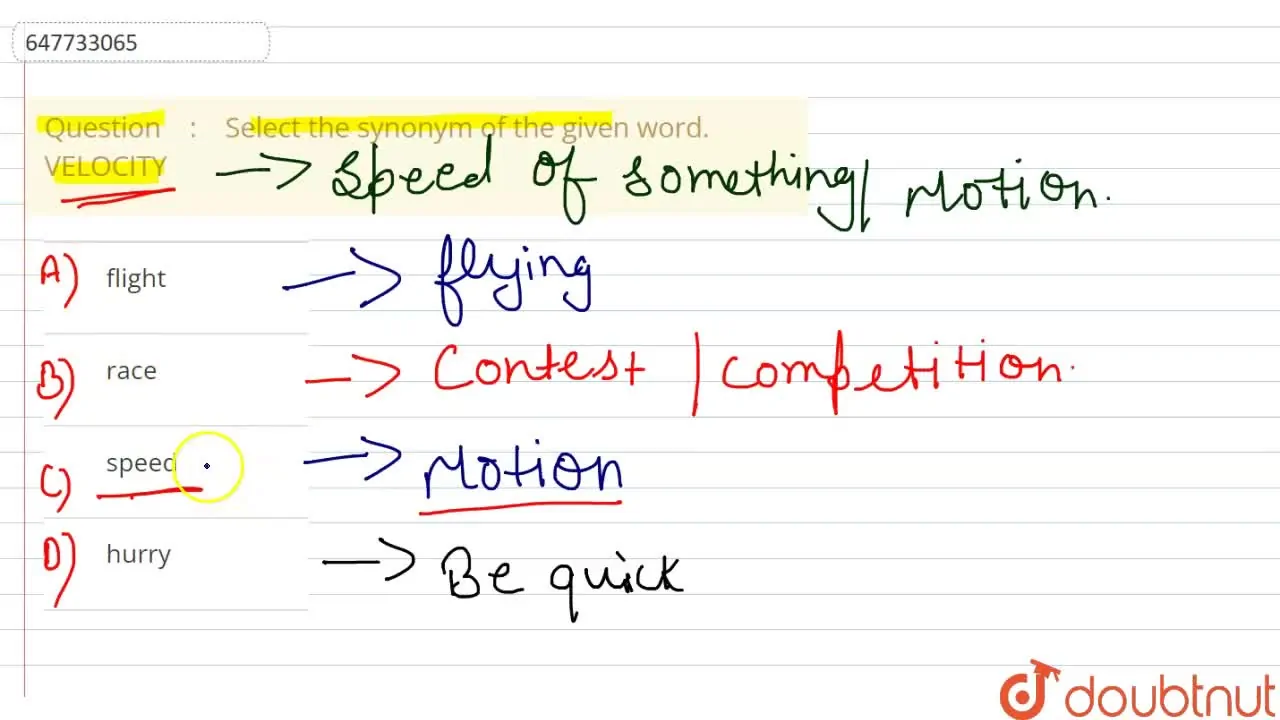 647733065
Question : Select the synonym of the given word.
VELOCITY → Speed of something/ Motion.
A) flight → flying
B) race → Contest / competition.
C) speed → Motion
D) hurry → Be quick
doubtnut